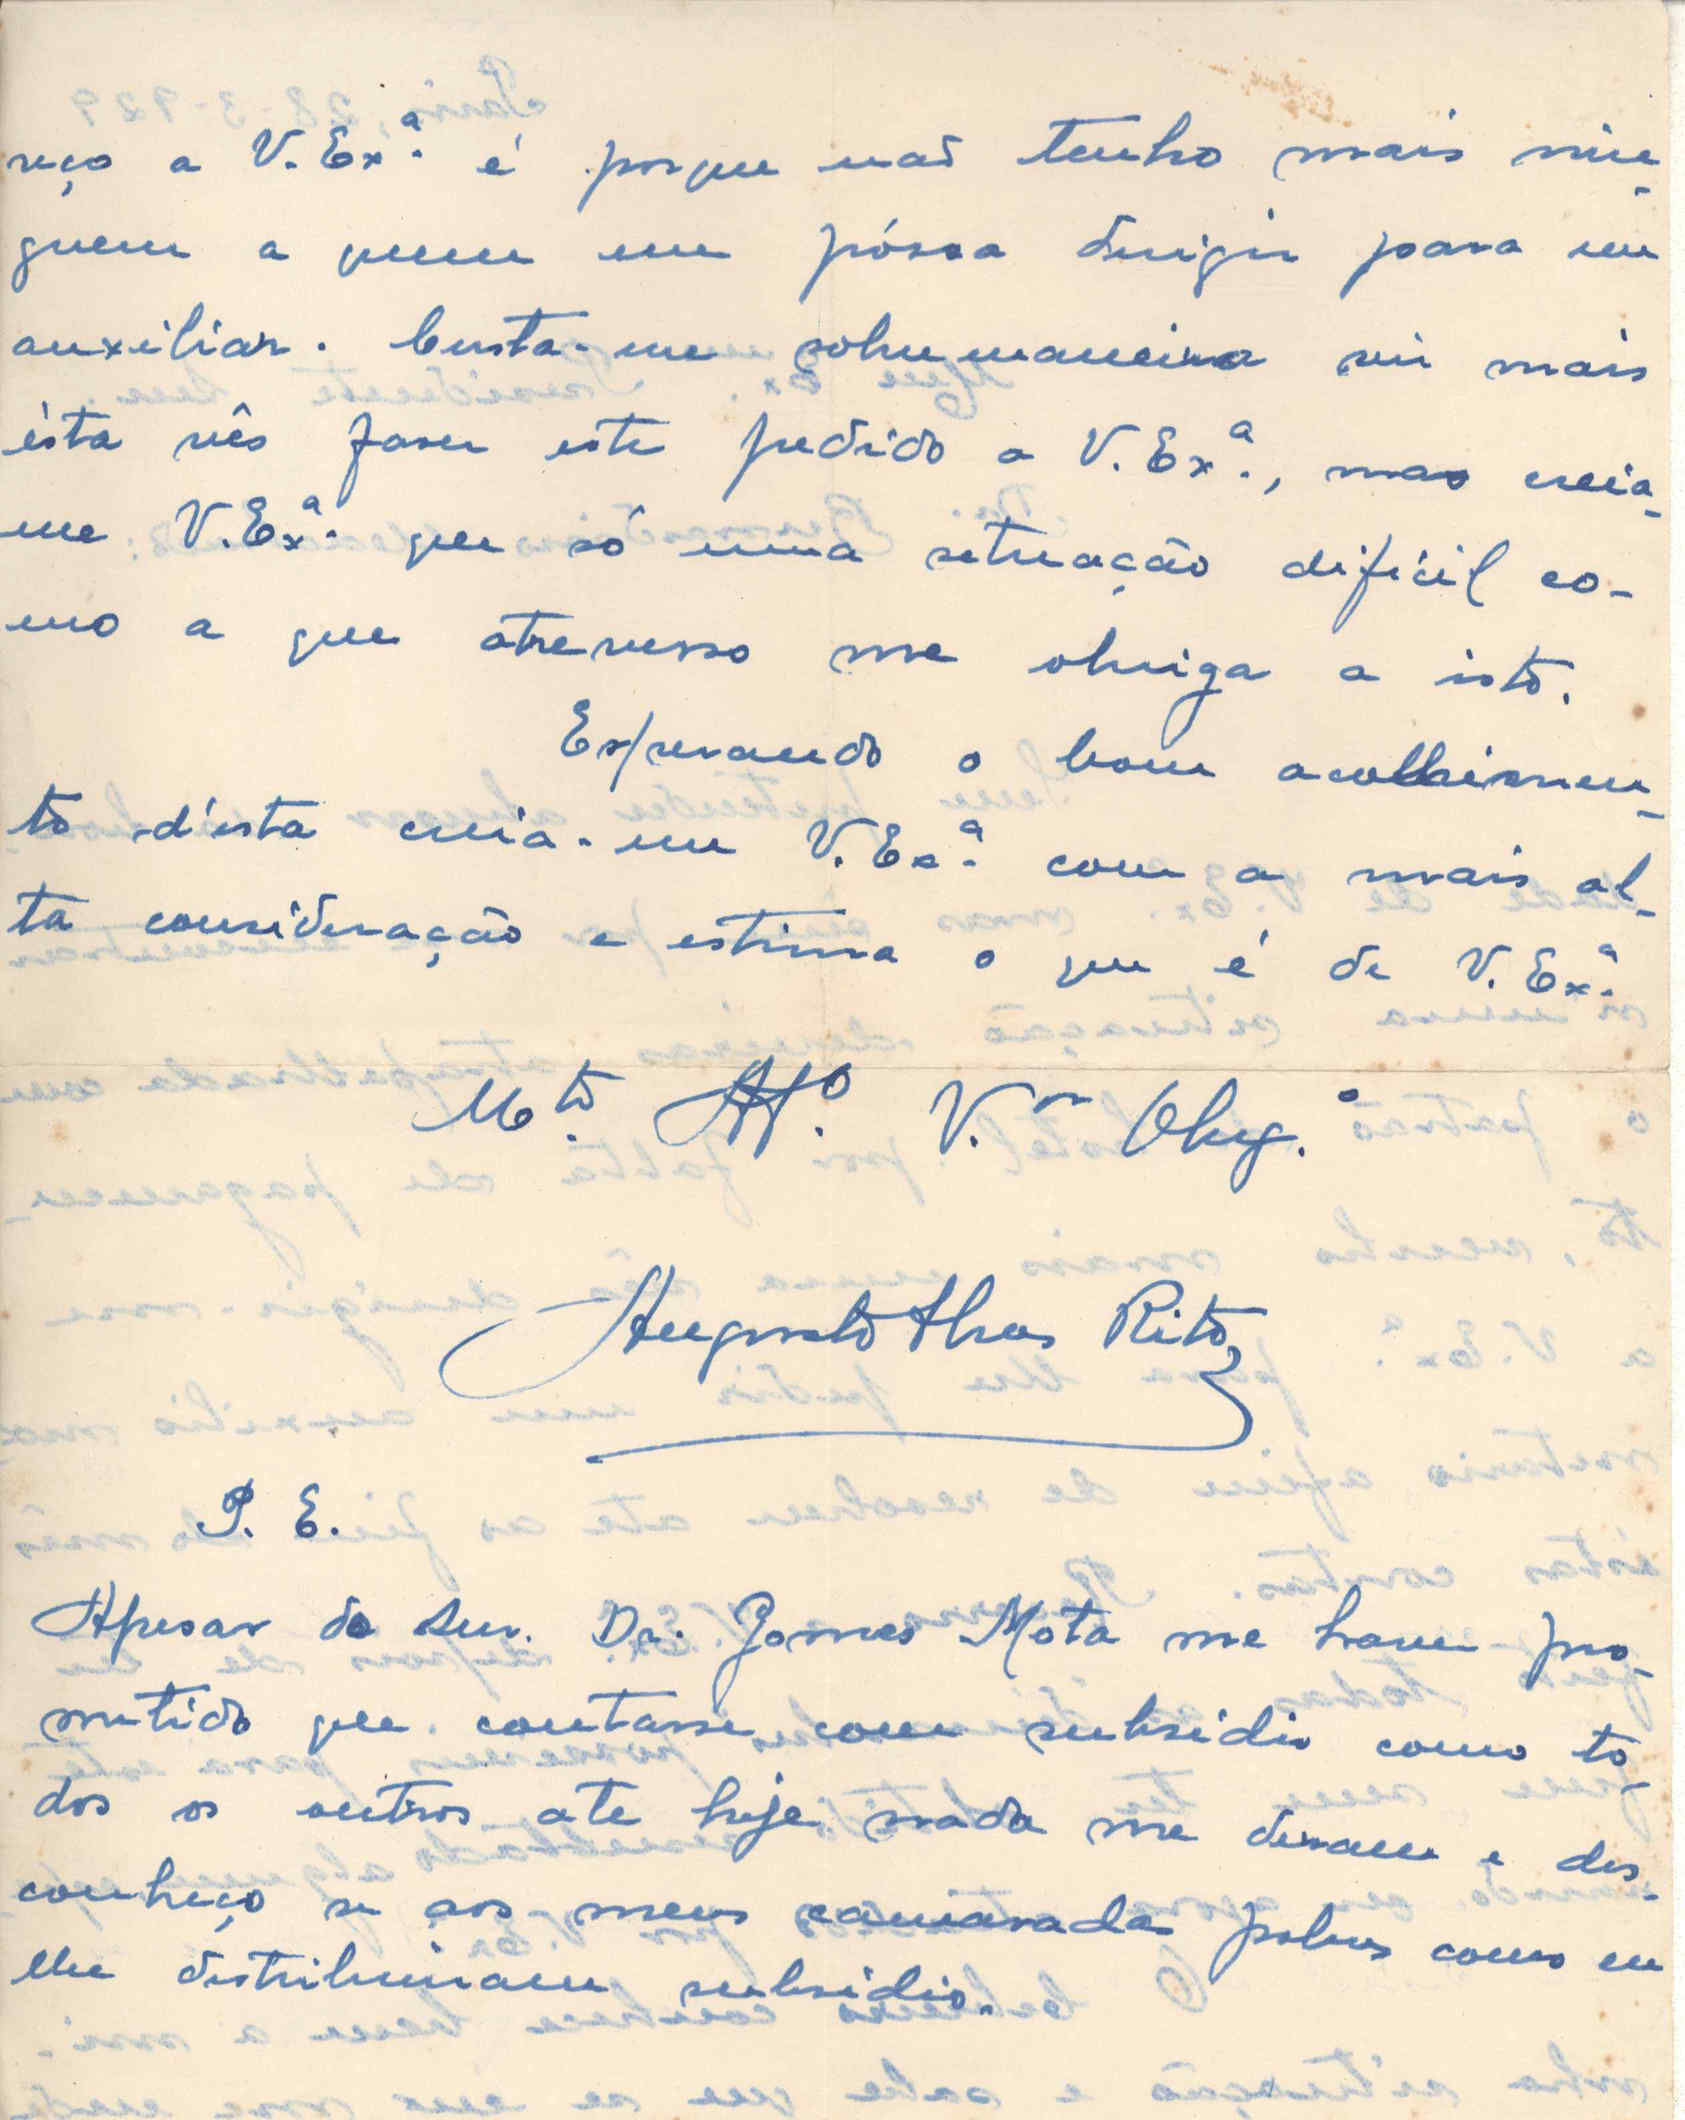 reço a V. Exª. é porque não tenho mais nin-
guem a quem me póssa dirigir para me
auxiliar. Custa-me sobremaneira vir mais
ésta vês faser este pedido a V. Exª., mas creia-
me V. Exª. que só uma situação dificil co-
mo a que atravesso me obriga a isto.
Esperando o bom acolhimen-
to d'esta creia-me V. Exª. com a mais al-
ta consideração e estima o que é de V. Exª.
Mtº. Attº. V.or Obrg.º
Augusto Rito
P. E.
Apesar do Snr. Dr. Gomes Mota me haver pro-
metido que contasse com subsidio como to-
dos os outros ate hoje nada me deram e des-
conheço se aos meus camaradas pobres como eu
lhe distribuiram subsidio.